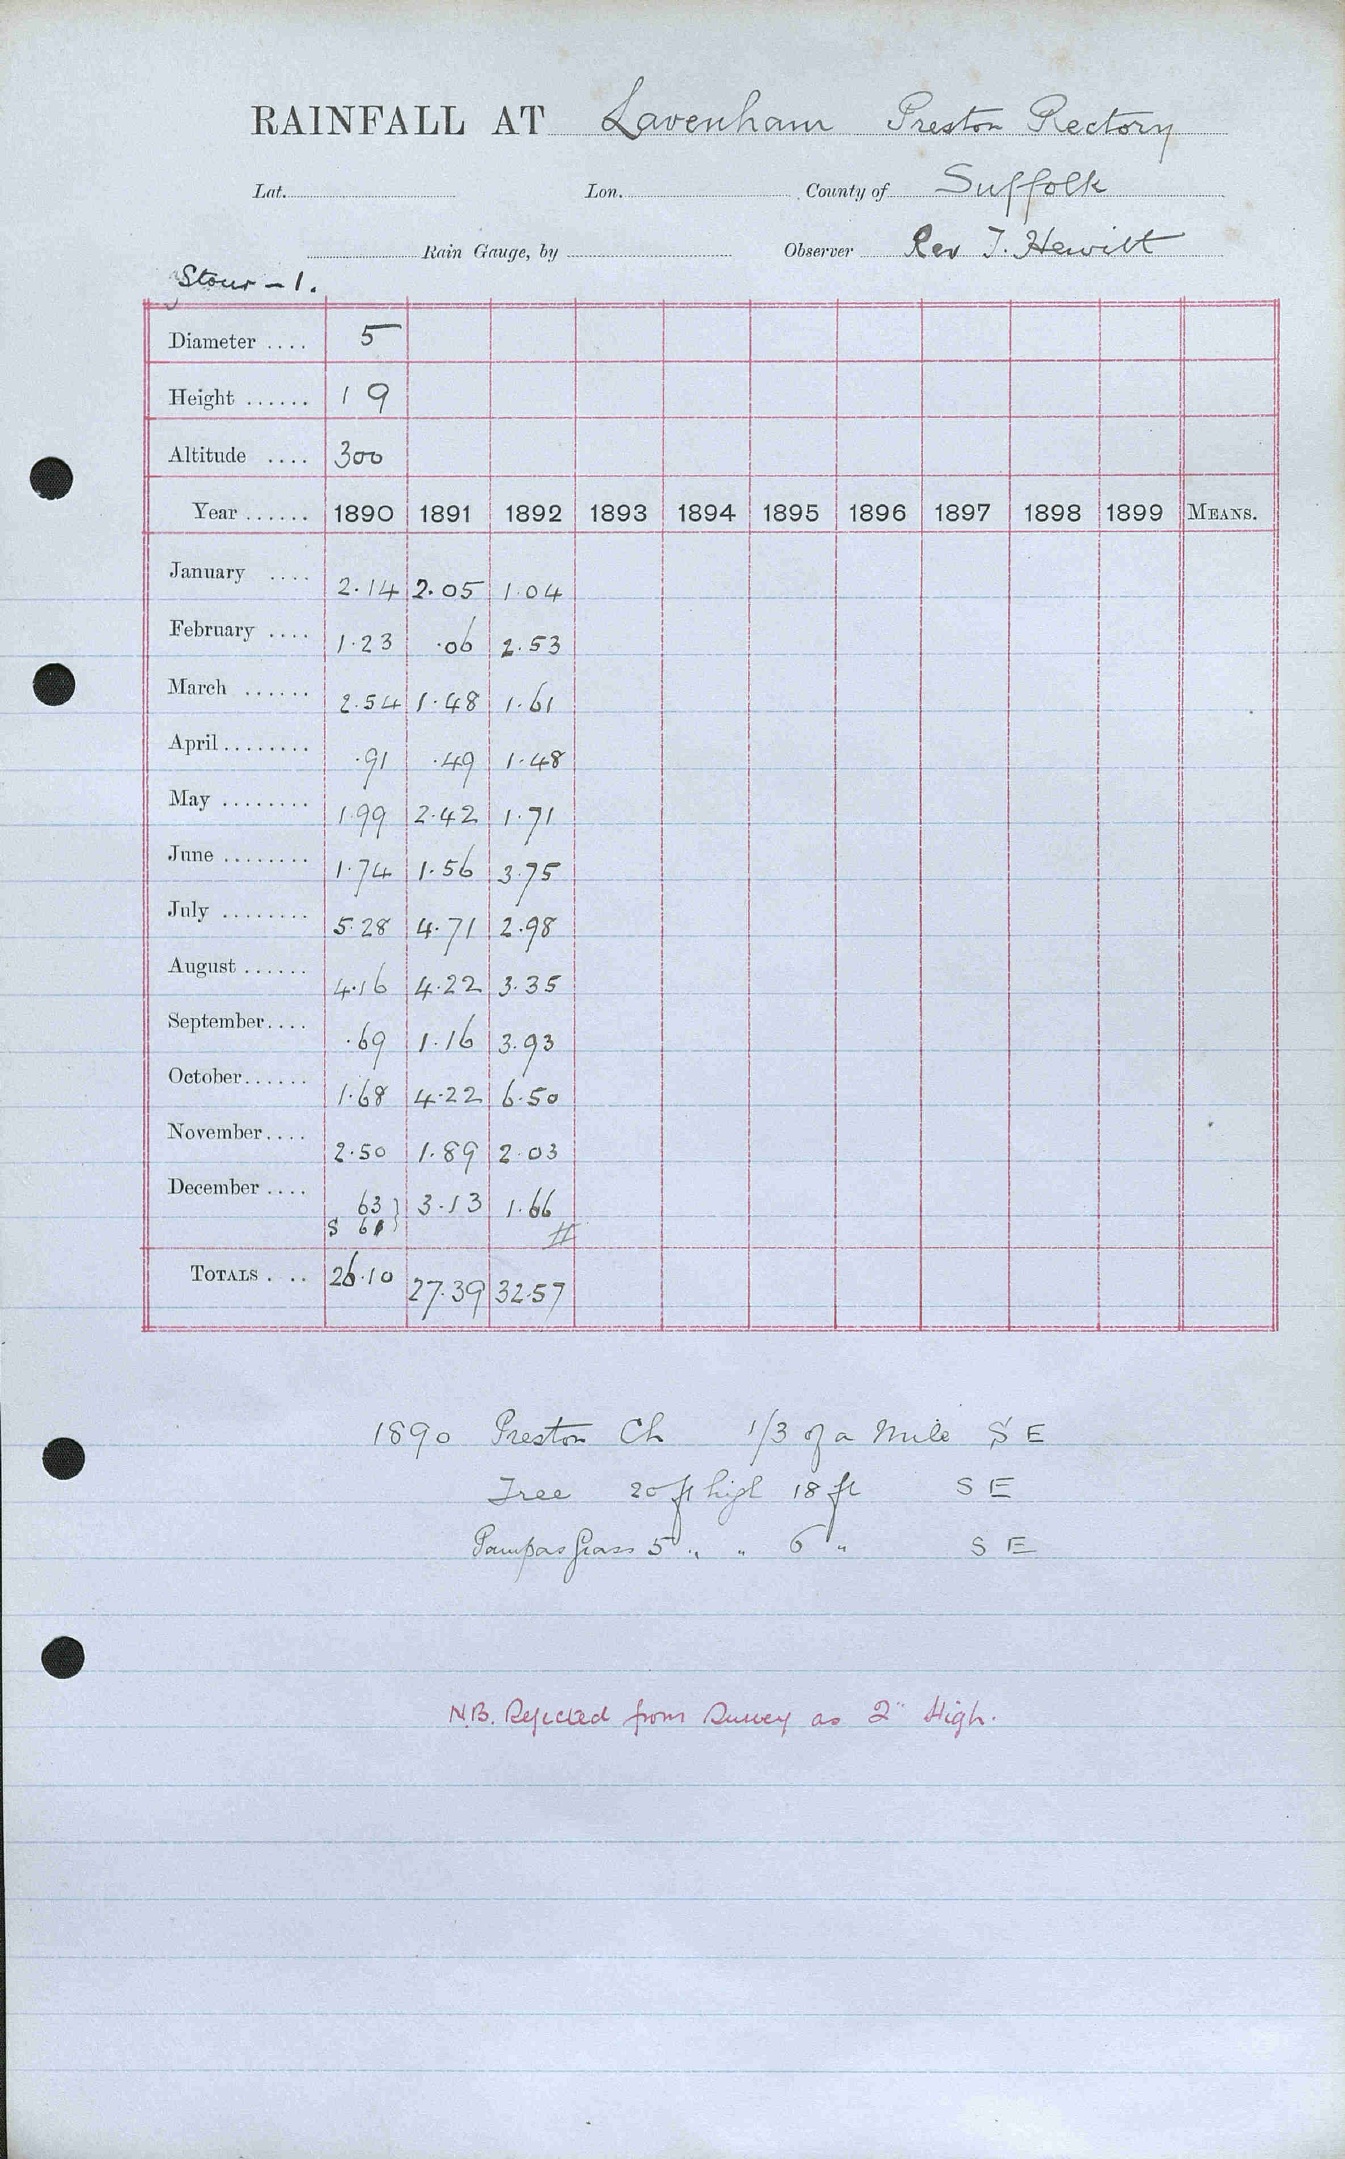 RAINFALL AT Lavenham Preston Rectory
Lat. Lon. County of Suffolk
Rain Gauge, by Observer Rev T. Hewitt
Stour - 1.
Diameter .... 5
Height ...... 1 9
Altitude .... 300
Year ...... 1890 1891 1892 1893 1894 1895 1896 1897 1898 1899 MEANS.
January .... 2.14 2.05 1.04
February .... 1.23 .06 2.53
March ...... 2.54 1.48 1.61
April ........ .91 .49 1.48
May ........ 1.99 2.42 1.71
June ........ 1.74 1.56 3.75
July ........ 5.28 4.71 2.98
August ...... 4.16 4.22 3.35
September.... .69 1.16 3.93
October...... 1.68 4.22 6.50
November.... 2.50 1.89 2.03
December .... 63 } 3.13 1.66
S 61
TOTALS . .. 26.10 27.39 32.57
1890 Preston Ch 1/3 of a Mile S E
Tree 20 ft high 18 ft S E
Pampas Grass 5 " " 6 " S E
N.B. Rejected from Survey as 2" High.